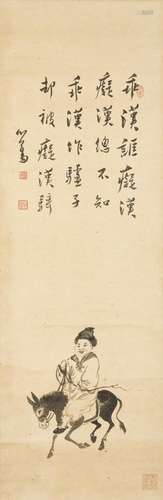 乖漢癡漢
癡漢總不知
乖漢作驢子
却被癡漢騎
心畬